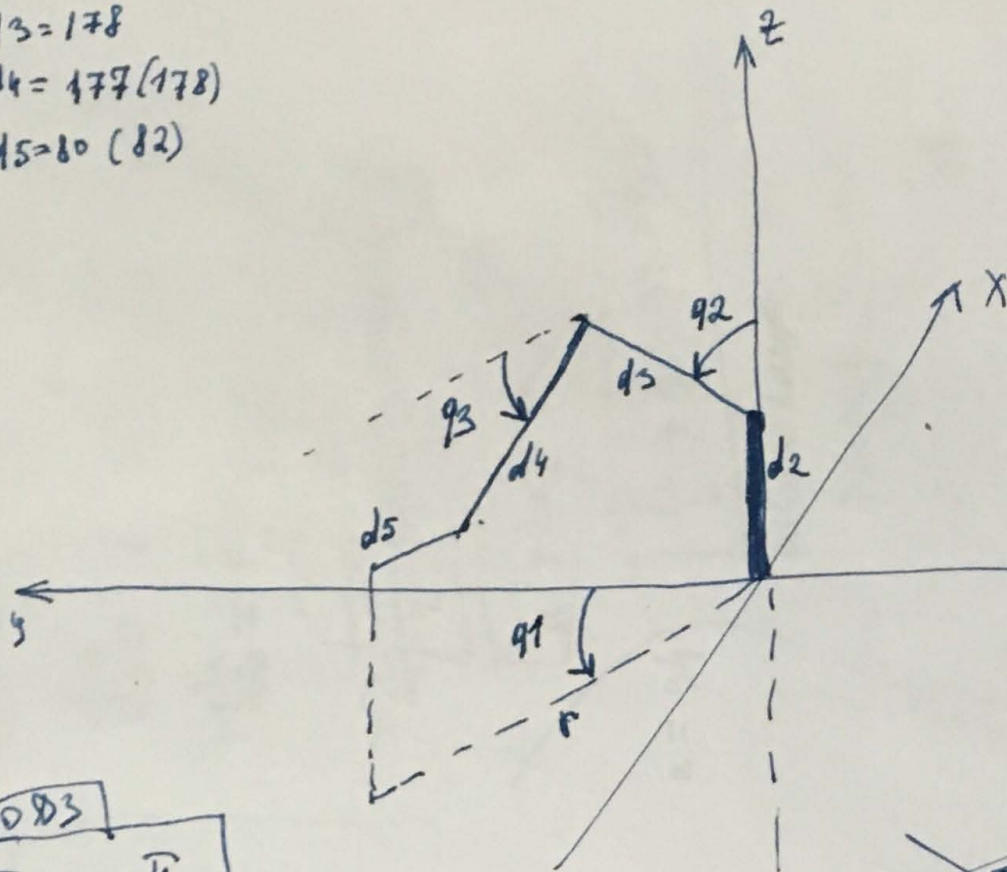 d3=178
d4= 177(178)
d5=80 (82)
z
X
q2
d3
q3
d4
d2
d5
y
q1
r